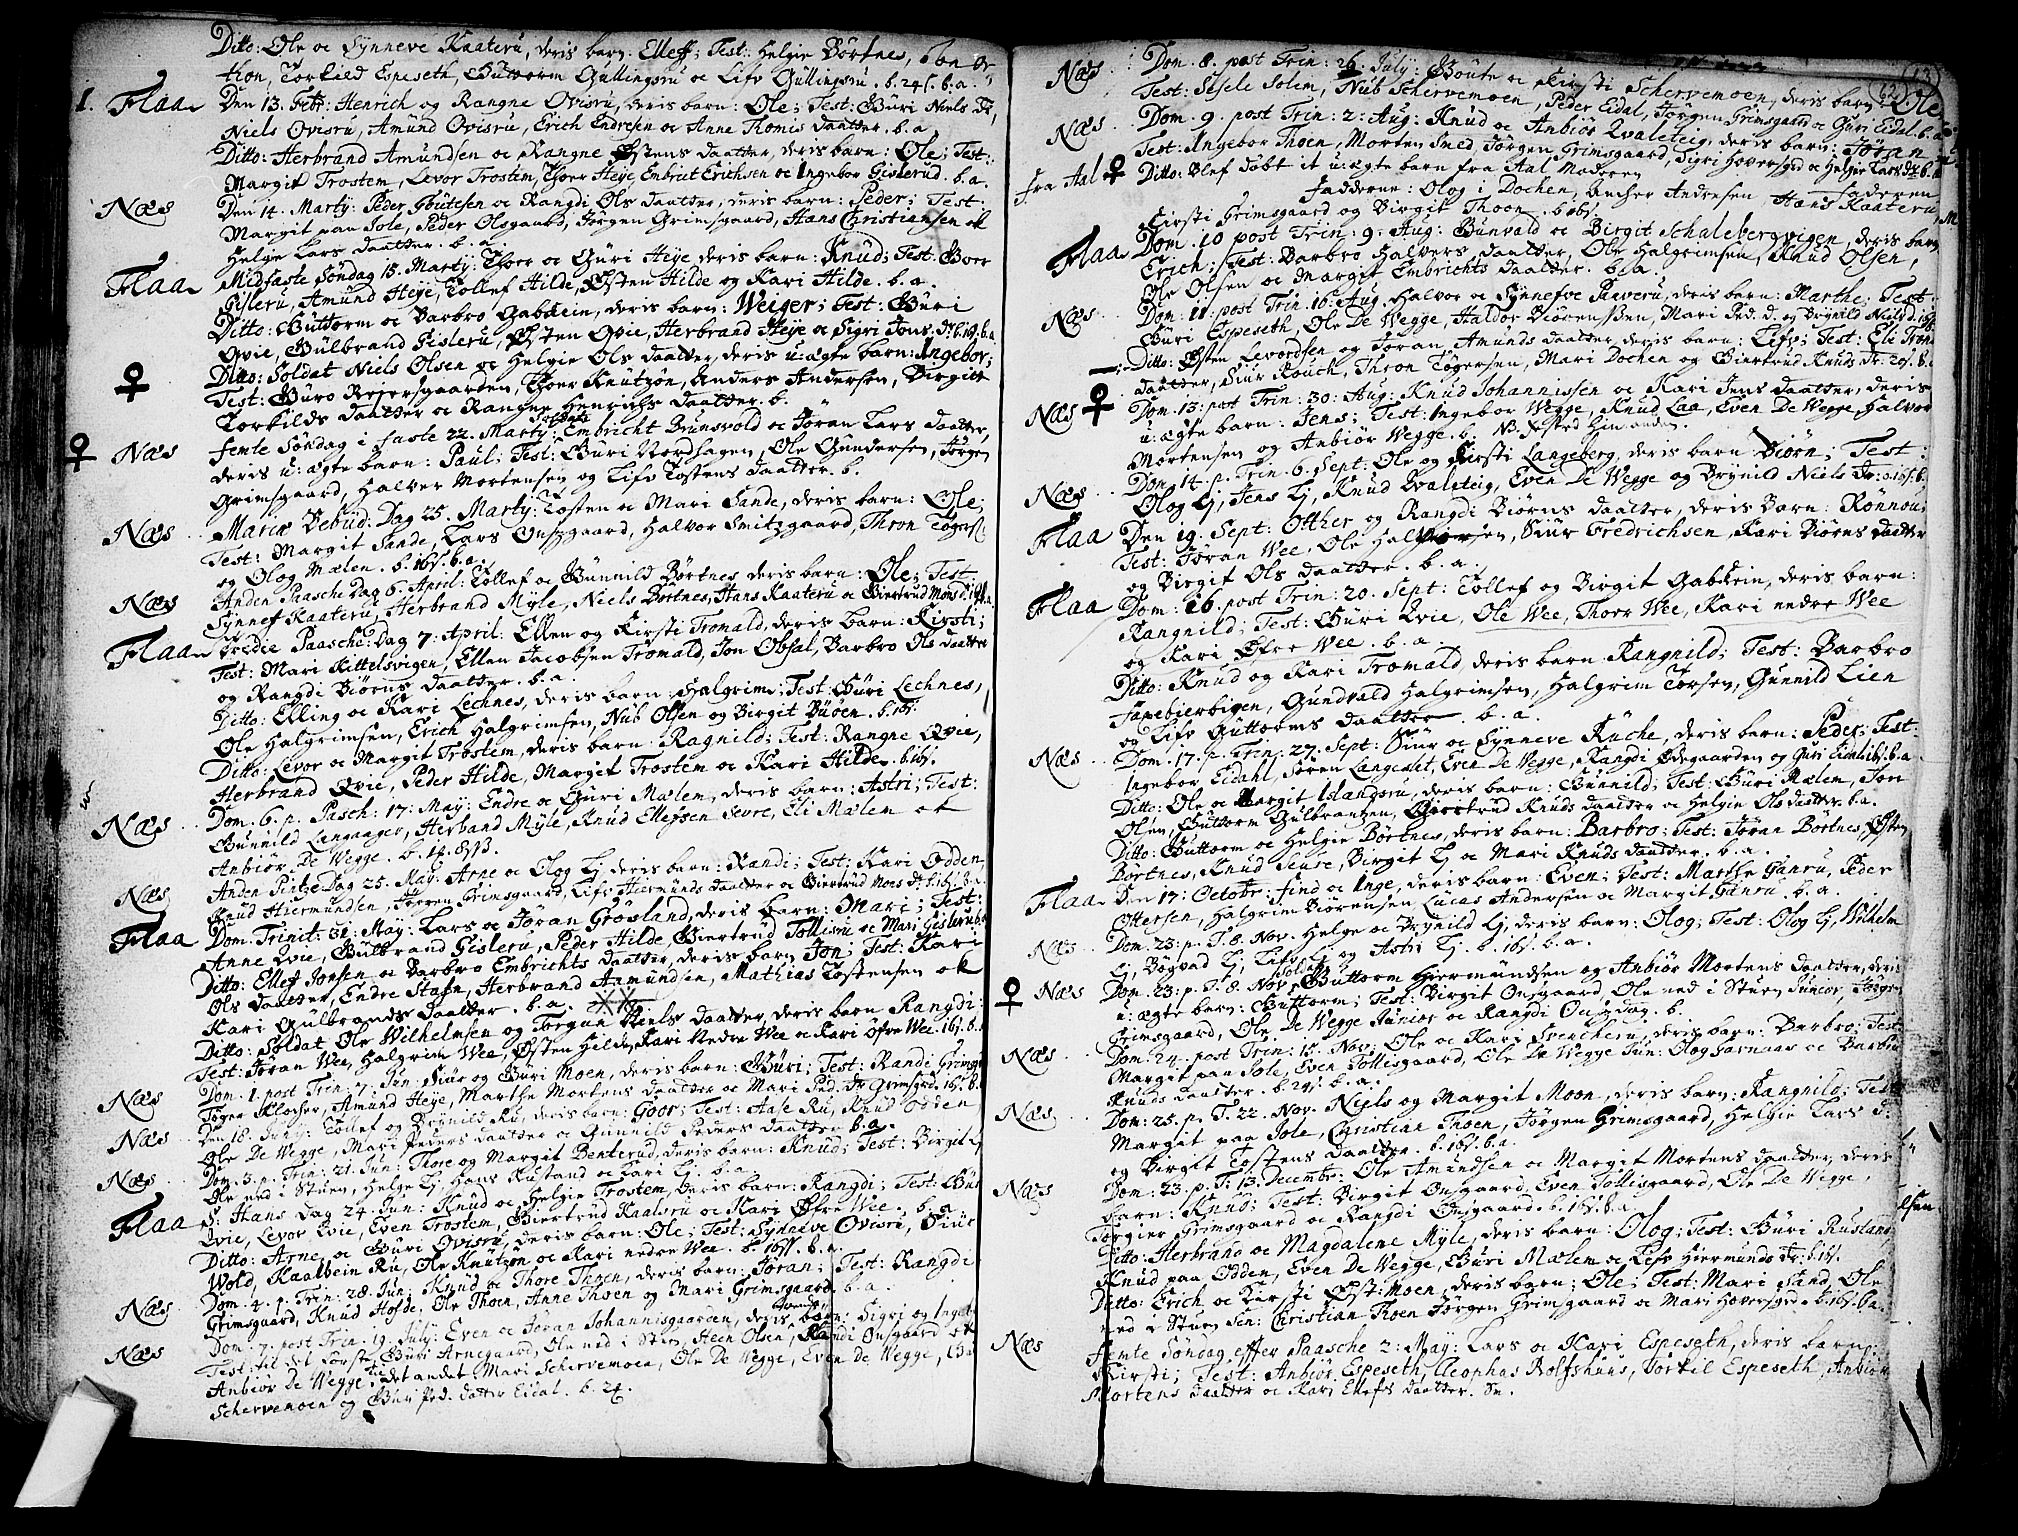 Ditto: Ole oc Synneve Kaaterü, deris barn: Elleff; Test: Helgie Börtnes,
thon, Torkild Espeseth, Guttorm Gullingsrü oc Lifv Gullingsrü. b. 24 s. b. a.
1. Flaa Den 13. Febr: Henrich og Rangne Ovisrü, deris barn: Ole; Test: Güri Niels Dr,
Niels Ovisrü, Amünd Ovisrü, Erich Endresen oc Anne Thomis Daatter. b. a.
Ditto: Herbrand Amundsen oc Rangne Østens Daatter, deris barn: Ole; Test:
Margit Trostem, Levor Trostem, Thoer Heÿe, Embrict Erichsen oc Ingebor Gislerud. b. a.
Næs Den 14. Martÿ: Peder Goutesen oc Rangdi Ols Daatter, deris barn: Peder; Test:
Margit paa Sole, Peder Olsgaard, Jørgen Grimsgaard, Hans Christiansen ok
Helge Lars daatter. b. a.
Flaa Midfaste Søndag 15. Martÿ: Thoer oc Güri Heÿe, deris barn: Knud; Test: Goer
Gislerü, Amünd Heÿe, Tollef Hilde, Østen Hilde og Kari Hilde. b. a.
Ditto: Guttorm oc Barbro Gabdein, deris barn: Weiger; Test: Güri
Qvie, Gülbrand Gislerü, Østen Qvie, Herbrand Heÿe oc Sigri Jons Dr. b. 19. b. a.
♀ Ditto: Soldat Niels Olsen oc Helgie Ols daatter, deris u:ægte barn: Ingebor;
Test: Güro Reiersgaarden, Thoer Knutzøn, Anders Andersen, Birgitt
Torkilds daatter oc Rangne Henrichs Daatter. b.
♀ Næs femte Søndag i faste 22. Martÿ: Soldat Embricht Brunsvold oc Jøran Lars Daatter,
deris u:ægte barn: Paul; Test: Güri Nordhagen, Ole Gundersen, Jørgen
Grimsgaard, Halvor Mortensen og Lifv Tostens Daatter. b.
Næs Mariæ Bebud: Dag 25. Martÿ: Tosten oc Mari Sande, deris barn: Ole;
Test: Margit Sande, Lars Onsgaard, Halvor Smitzgaard, Thron Tøgers:
og Olog Mælen. b. 16 s. b. a.
Næs Anden Paasche Dag 6. April: Tollef oc Gunnild Börtnes, deris barn: Ole; Test
Sÿnnef Kaaterü, Herbrand Mÿle, Niels Börtnes, Hans Kaaterü oc Giertrud Mons d:
Flaa Tredie Paasche: Dag 7. April: Ellen og Kirsti Tromald, deris barn: Kirsti;
Test: Mari Kittelsvigen, Ellen Jacobsen Tromald, Jon Obsal, Barbro Ols daatter
og Rangdi Biørns Daatter. b. a.
Ditto: Elling oc Kari Lechnes, deris barn: Halgrim; Test: Güri Lechnes,
Ole Halgrimsen, Erich Halgrimsen, Nub Olsen og Birgit Büøen. b. 16 s.
Ditto: Levor oc Margit Trostem, deris barn: Ragnild; Test: Rangne Qvie,
Herbrand Qvie, Peder Hilde, Margit Trostem oc Kari Hilde. b. 16 s.
Næs Dom. 6. p. Pasch: 17. Maÿ: Endre oc Güri Mælem, deris barn: Astri; Test:
Gunnild Langaager, Herbrand Mÿle, Knud Ellefsen Sevre, Eli Mælem ok
Anbiør De Wegge. b. 14.
Næs Anden Pintze Dag 25. Maÿ: Arne oc Olog Lj, deris barn: Randi; Test: Kari Odden,
Knud Hiermundsen, Jørgen Grimsgaard, Lifv Hiermunds daatter oc Giertrud Mons Dr. b. 16 s. b. a.
Flaa Dom. Trinit: 31. Maÿ: Lars oc Jøran Grøsland, deris barn: Mari; Test:
Anne Qvie, Gülbrand Gislerü, Peder Hilde, Giertrüd Tollisrü oc Mari Gislerü b. a.
Ditto: Ellef Jonsen oc Barbro Embrichts daatter, deris barn Jon; Test: Kari
Ols Daatter, Endre Stafn, Herbrand Amündsen, Mathias Tostensen ok
Kari Gulbrands Daatter. b. a.
Ditto: Soldat Ole Wilhelmsen og Torgun Niels Daatter, deris barn Rangdi:
Test: Jøran Wee, Halgrim Wee, Østen Hilde, Kari Nedre Wee oc Kari Øfre Wee. 16 s. b. a.
Næs Dom. 1. post Trin: 7. Jun: Siür og Güri Moen, deris barn: Güri; Test: Randi Grimsg
Tøger Klocher, Amünd Heÿe, Marthe Mortens daatter oc Mari Ped: Dr Grimsgrd. 16 s. b.
Næs Den 18. Junÿ: Tollef og Brÿnild Rü, deris barn: Goor; Test: Aase Rü, Knud Odden
Ole De Wegge, Mari Peders daatter oc Gunnild Peders Daatter b. a.
Næs Dom. 3. p. Trin: 21. Jun: Thore og Margit Benterud, deris barn: Knud; Test: Birgit Lj
Ole ned i Stuen, Helge Lj, Hans Rustand oc Kari Lj. b. a.
Flaa S: Hans Dag 24. Jun: Knud oc Helgie Trostem, deris barn: Rangdi; Test: Güri
Qvie, Levor Qvie, Even Trostem, Giertrüd Kaalsrü oc Kari Øfre Wee. b. a.
Ditto: Arne oc Güri Ovisrü, deris barn: Ole; Test: Sÿnneve Ovisrü, Siür
Wold, Kaalbein Rü, Ole Knutzøn oc Kari nedre Wee. b. 16 s. b. a.
Næs Dom. 4. p. Trin. 28. Jun: Knud oc Thore Thoen, deris barn: Jøran; Test: Rangdi
Grimsgaard, Knud Hofde, Ole Thoen, Anne Thoen og Mari Grimsgaard. b. a.
Næs Dom. 7. post Trin. 19. Julÿ: Even oc Jøran Johannisgaarden, deris børn: Sigri og Ingeb
Test: til det første Güri Arnegaard, Ole ned i Stuen, Heen Olsen, Randi Onsgaard ok
Anbiør De Wegge. Til det andet Mari Schervemoen, Ole De Wegge, Even De Wegge,
Schervemoen og Güri Ped. datter Eidal. b. 24.
62
Næs Dom. 8. post Trin: 26. Julÿ: Goute oc Kirsti Schervemoen, deris barn: Ole
Test: Sesele Solem, Nub Schervemoen, Peder Eidal, Jørgen Grimsgaard oc Guri Eidal. b. a.
Næs Dom. 9. post Trin: 2. Aug: Knud oc Anbiør Qvalsteig, deris barn: Jøran
Test: Ingebor Thoen, Morten Smed, Jørgen Grimsgaard, Sigri Hoversgrd oc Helgie Lars Dr. b.
fra Aal ♀ Ditto: Blef døbt it uægte barn fra Aal Moderen
Fadderne: Olog i Dochen, Ancher Andersen, Hans Kaaterü,
Kirsti Grimsgaard og Birgit Thoen. b. 16 s.
Flaa Dom. 10 post Trin: 9. Aug: Gunvald oc Birgit Schalebergvigen, deris barn
Erich; Test: Barbro Halvers Daatter, Ole Halgrimsen, Knud Olsen,
Ole Olsen oc Margit Embrichts Daatter. b. a.
Næs Dom. 11. post Trin. 16. Aug. Halvor oc Sÿnnefve Raverü, deris barn: Marthe; Test:
Güri Espeseth, Ole De Wegge, Haldor Biørensen, Mari Ped. d. og Brÿnild Niels d. 16 s.
Ditto: Østen Levordsen og Jøran Amunds daatter, deris barn: Lifv; Test: Eli Tron
daatter, Siür Rouch, Thron Tøgersen, Mari Dochen og Giertrud Knuds Dr. 20 s. b. a.
Næs ♀ Dom. 13. post Trin: 30. Aug: Knud Johannissen oc Kari Jens daatter, deris
u:ægte barn: Jens; Test: Ingebor Wegge, Knud Laa, Even De Wegge, Halvor
Mortensen og Anbiør Wegge. b. NB. Ægted hin anden.
Næs Dom. 14. p. Trin. 6. Sept: Ole og Kirsti Langeberg, deris barn Biørn; Test:
Olog Lj, Jens Lj, Knud Qvalsteig, Even De Wegge og Brÿnild Niels Dr: 16 s. b.
Flaa Den 19. Sept: Otther og Rangdi Biørns Daatter, deris barn: Rønnou;
Test: Jøran Wee, Ole Halgrimsen, Siür Fredrichsen, Kari Biørns Daatter
og Birgit Ols Daatter. b. a.
Flaa Dom: 16. post Trin: 20. Sept: Tollef og Birgit Gabdein, deris barn:
Rangnild; Test: Güri Qvie, Ole Wee, Thorr Wee, Kari nedre Wee
og Kari Øfre Wee. b. a.
Ditto: Knud og Kari Tromald, deris barn Rangnild; Test: Barbro
Gundvald Halgrimsen, Halgrim Torsen, Gunnild Lien
og Lifv Guttorms Daatter. b. a.
Næs Dom. 17. p. Trin: 27. Sept: Siür oc Sÿnneve Rüche, deris barn: Peder; Test:
Ingebor Eidahl, Søren Langeslet, Even De Wegge, Rangdi Ødegaarden og Guri Eidal 16 s. b. a.
Ditto: Ole oc Margit Islandsrü, deris barn: Gunnild; Test: Güri Mælem, Jon
Olsen, Guttorm Gulbransen, Giertrüd Knuds daatter oc Helgie Ols datter. b. a.
Ditto: Guttorm oc Helgie Börtnes, deris barn: Barbro; Test: Jøran Börtnes, Østen
Börtnes, Knud Seuse, Birgit Lj oc Mari Knuds Daatter. b. a.
Flaa Den 17. Octobr: find oc Inge, deris barn: Even; Test: Marthe Ganrü, Peder
Ottersen, Halgrim Biørensen, Lucas Andersen oc Margit Ganrü. b. a.
Næs Dom. 23. p. T. 8. Nov. Helge oc Brÿnild Lj, deris barn: Olog; Test: Olog Lj, Wilhelm
Lj, Bøgvad Lj, Lifv Lj og Astri Lj. b. 16 s. b. a.
♀ Næs Dom. 23. p. T. 8. Nov. Soldat Guttorm Hiermündsen og Anbiør Mortens Daatter, deris
u:ægte barn: Guttorm; Test: Birgit Onsgaard, Ole ned i Stuen Junior, Jørgen
Grimsgaard, Ole De Wegge Junior oc Rangdi Onsgaard. b.
Næs Dom. 24. post Trin: 15. Nov: Ole oc Kari Svenchern, deris barn: Barbro: Test:
Margit paa Sole, Even Tollisgaard, Ole De Wegge Jun: Olog Garnaas oc Barbro
Knuds daatter. b. 24 s. b. a.
Næs Dom: 25. p. T. 22. Nov. Niels og Margit Moon, deris barn: Rangnild; Test:
Margit paa Sole, Christian Thoen, Jørgen Grimsgaard, Helgie Lars D:
og Birgit Tostens Daatter. b. 16 s. b. a.
Næs Dom: 23. p. T: 13. Decembr: Ole Amündsen oc Margit Mortens daatter, deris
barn: Knud; Test: Birgit Onsgaard, Even Tollisgaard, Ole De Wegge,
Torgier Grimsgaard oc Rangdi Onsgaard. b. 16 s. b. a.
Ditto: Herbrand oc Magdalene Mÿle, deris barn: Olog; Test: Güri Rustand,
Knud paa Odden, Even De Wegge, Güri Mælem oc Lifv Hiermunds Dr: b. 16 s.
Ditto: Erich oc Kirsti Øst: Moen, deris barn: Ole; Test: Mari Sand, Ole
ned i Stuen Sen: Christian Thoen, Jørgen Grimsgaard oc Mari Hoversgrd. b. 16 s. b. a.
Næs femte Søndag effter Paasche 2. Maÿ: Lars oc Kari Espeseth, deris barn
Kirsti; Test: Anbiør Espeseth, Cleophas Rolfshuus, Torkil Espeseth, Anbiør
Mortens Daatter oc Kari Ellefs daatter.